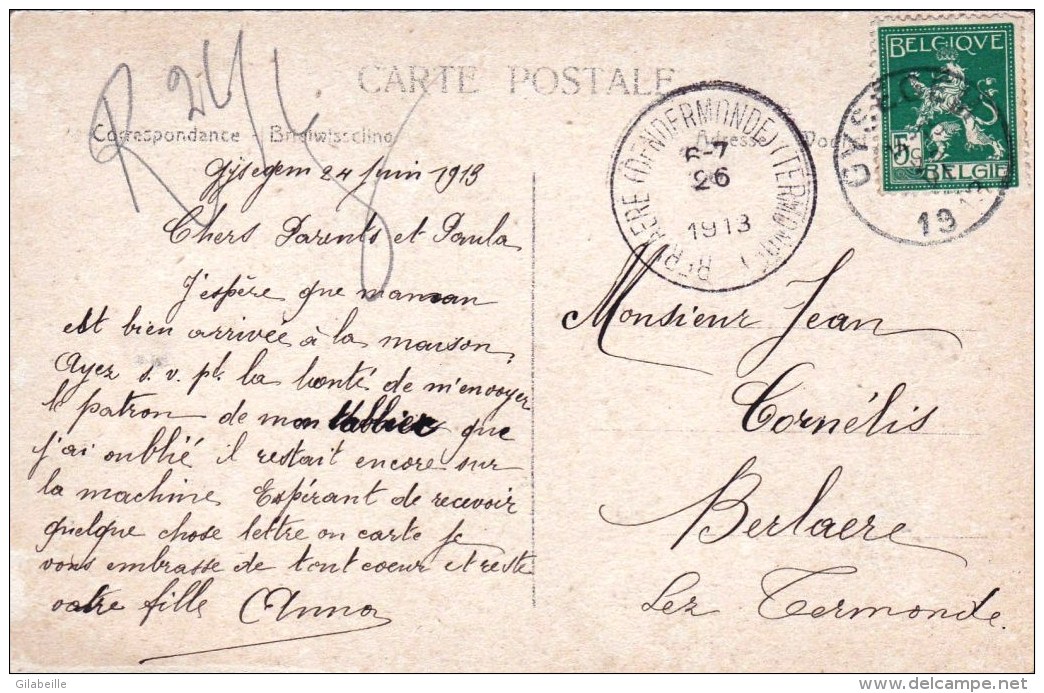 R 24
CARTE POSTALE
Correspondance - Briefwisseling
Adresse
Gysegem 24 Juin 1913
Chers Parents et Paula
J'espère que maman
est bien arrivée à la maison,
Ayez s. v. pl. la bonté de m'envoyer
le patron de mon tablier que
j'ai oublié il restait encore sur
la machine Espérant de recevoir
quelque chose lettre ou carte je
vous embrasse de tout coeur et reste
votre fille Anna
BELGIQUE
5c
BELGIË
GYSEGEM
1913
BERLAERE (DENDERMONDE) (TERMONDE)
6-7
26
1913
Monsieur Jean
Cornélis
Berlaere
Lez Termonde.
Gilabeille
delcampe.net